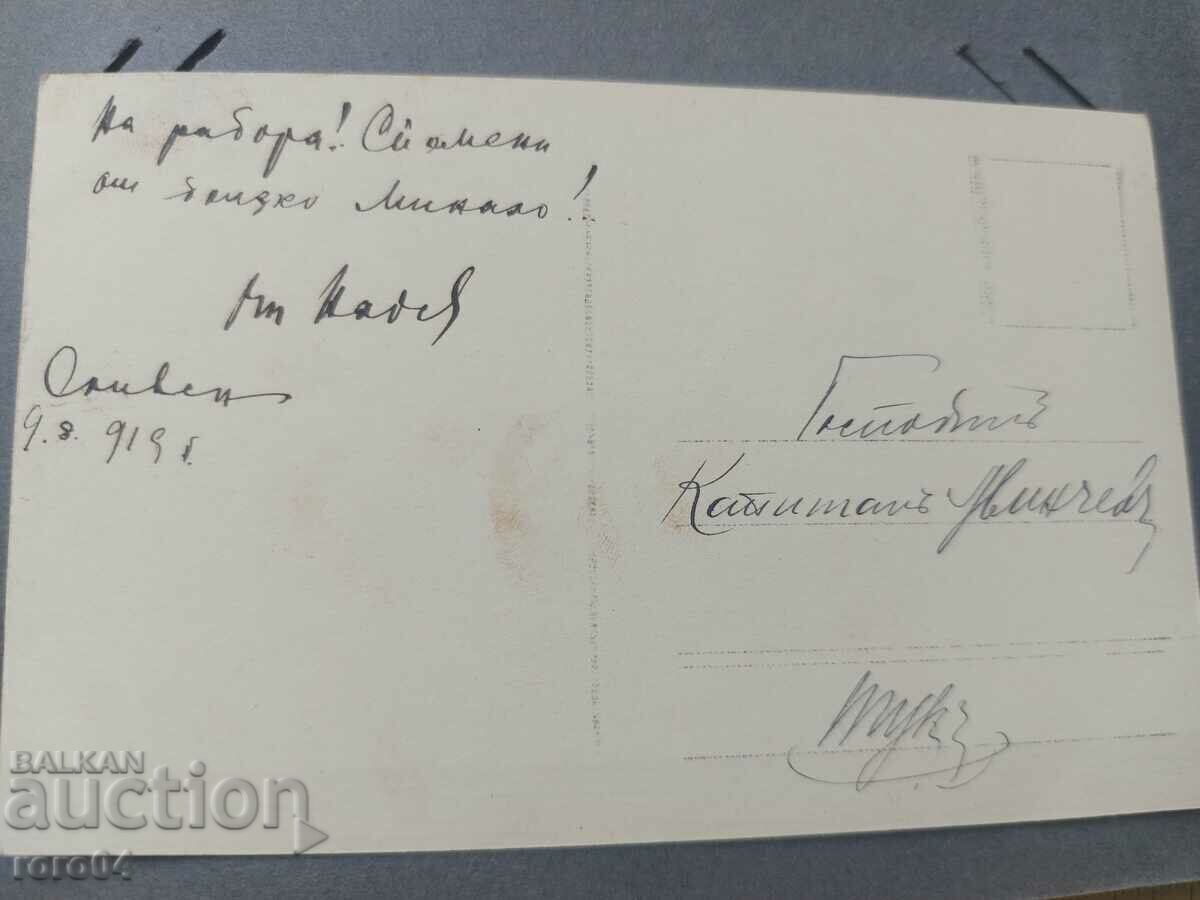 На работа! Спомени
от близко Минало!
От
Сливен
9.8. 919 г.
Господинъ
Капитанъ Минчевъ
Тукъ
BALKAN
auction
roro04